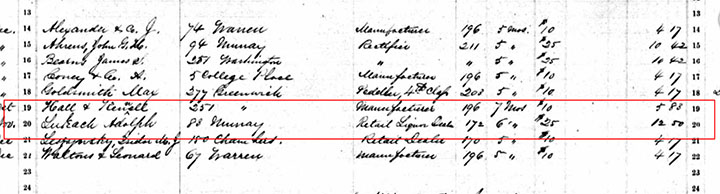 13
14 Alexander & Co. J. 74 Warren Manufacturer 196 5 Mos. $10 4 17 14
15 Ahrens, John G. H. 94 Murray Rectifier 211 5 " $25 10 42 15
16 Bearns James S. 281 Washington " " 5 " $25 10 42 16
17 Coney & Co. A. 5 College Place Manufacturer 196 5 " $10 4 17 17
18 Goldsmith Max 277 Greenwich Peddler, 4th Class 203 5 " $10 4 17 18
19 Hall & 251 " Manufacturer 196 7 Mos $10 5 83 19
20 Adolph 83 Murray Retail Liquor Dealer 172 6 " $25 12 50 20
21 150 Chambers. Retail Dealer 170 5 " $10 4 17 21
22 Waltons & Leonard 67 Warren Manufacturer 196 5 " $10 4 17 22